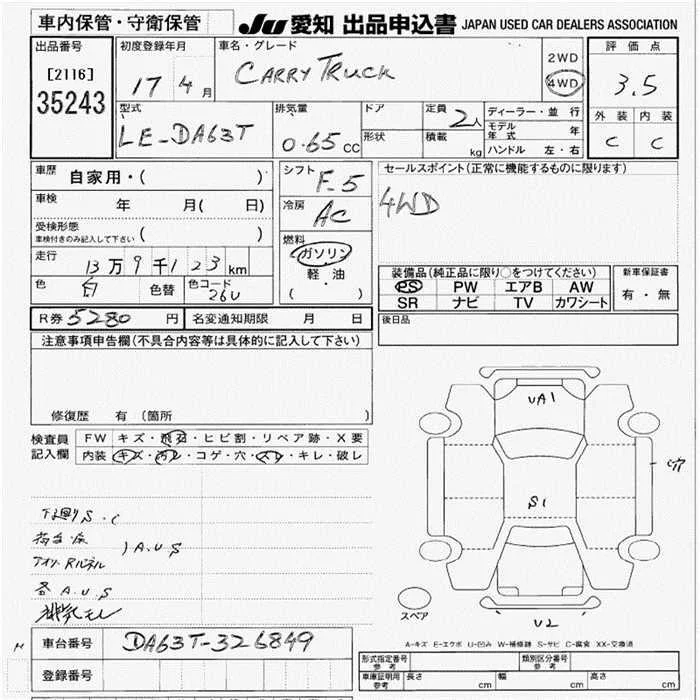 車内保管・守衛保管 JU 愛知 出品申込書 JAPAN USED CAR DEALERS ASSOCIATION
出品番号 初度登録年月 車名・グレード 評価点
[2116] 17 4月 CARRY TRUCK 2WD 4WD 3.5
35243
外装 内装
型式 排気量 ドア 定員 2人 ディーラー・並行
LE-DA63T 0.65 CC 形状 積載 kg モデル年式 年 C C
ハンドル 左・右
車歴 自家用・( ) シフト F-5 セールスポイント(正常に機能するものに限ります)
車検 年 月( 日) 冷房 AC 4WD
受検形態
車検付きのみ記入して下さい ( ) 燃料 ガソリン
走行 13万9千123km 軽・油
( )
装備品(純正品に限り○をつけてください) 新車保証書
色 白 色替 色コード 26U PS PW エアB AW 有・無
SR ナビ TV カワシート
R券 5280 円 名変通知期限 月 日 後日品
注意事項申告欄(不具合内容等は具体的に記入して下さい)
UA1
修復歴 有 (箇所 )
検査員 FW キズ・飛石・ヒビ割・リペア跡・X要
記入欄 内装 キズ・汚レ・コゲ・穴・スレ・キレ・破レ
C穴
S1
下廻りS.C
荷台・床
A.U.S
各A.U.S
スペア
U2
車台番号 DA63T-326849
A-キズ E-エクボ U-凹み W-補修跡 S-サビ C-腐食 XX-交換済
登録番号
形式指定番号 参考 類別区分番号 参考
車庫証明用 参考 長さ cm 幅 cm 高さ cm